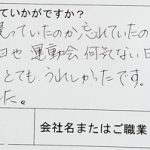 ていかがですか？
っていたのか忘れていたの
日や 運動会 何気ない日
とても、うれしかったです。
た。
会社名またはご職業